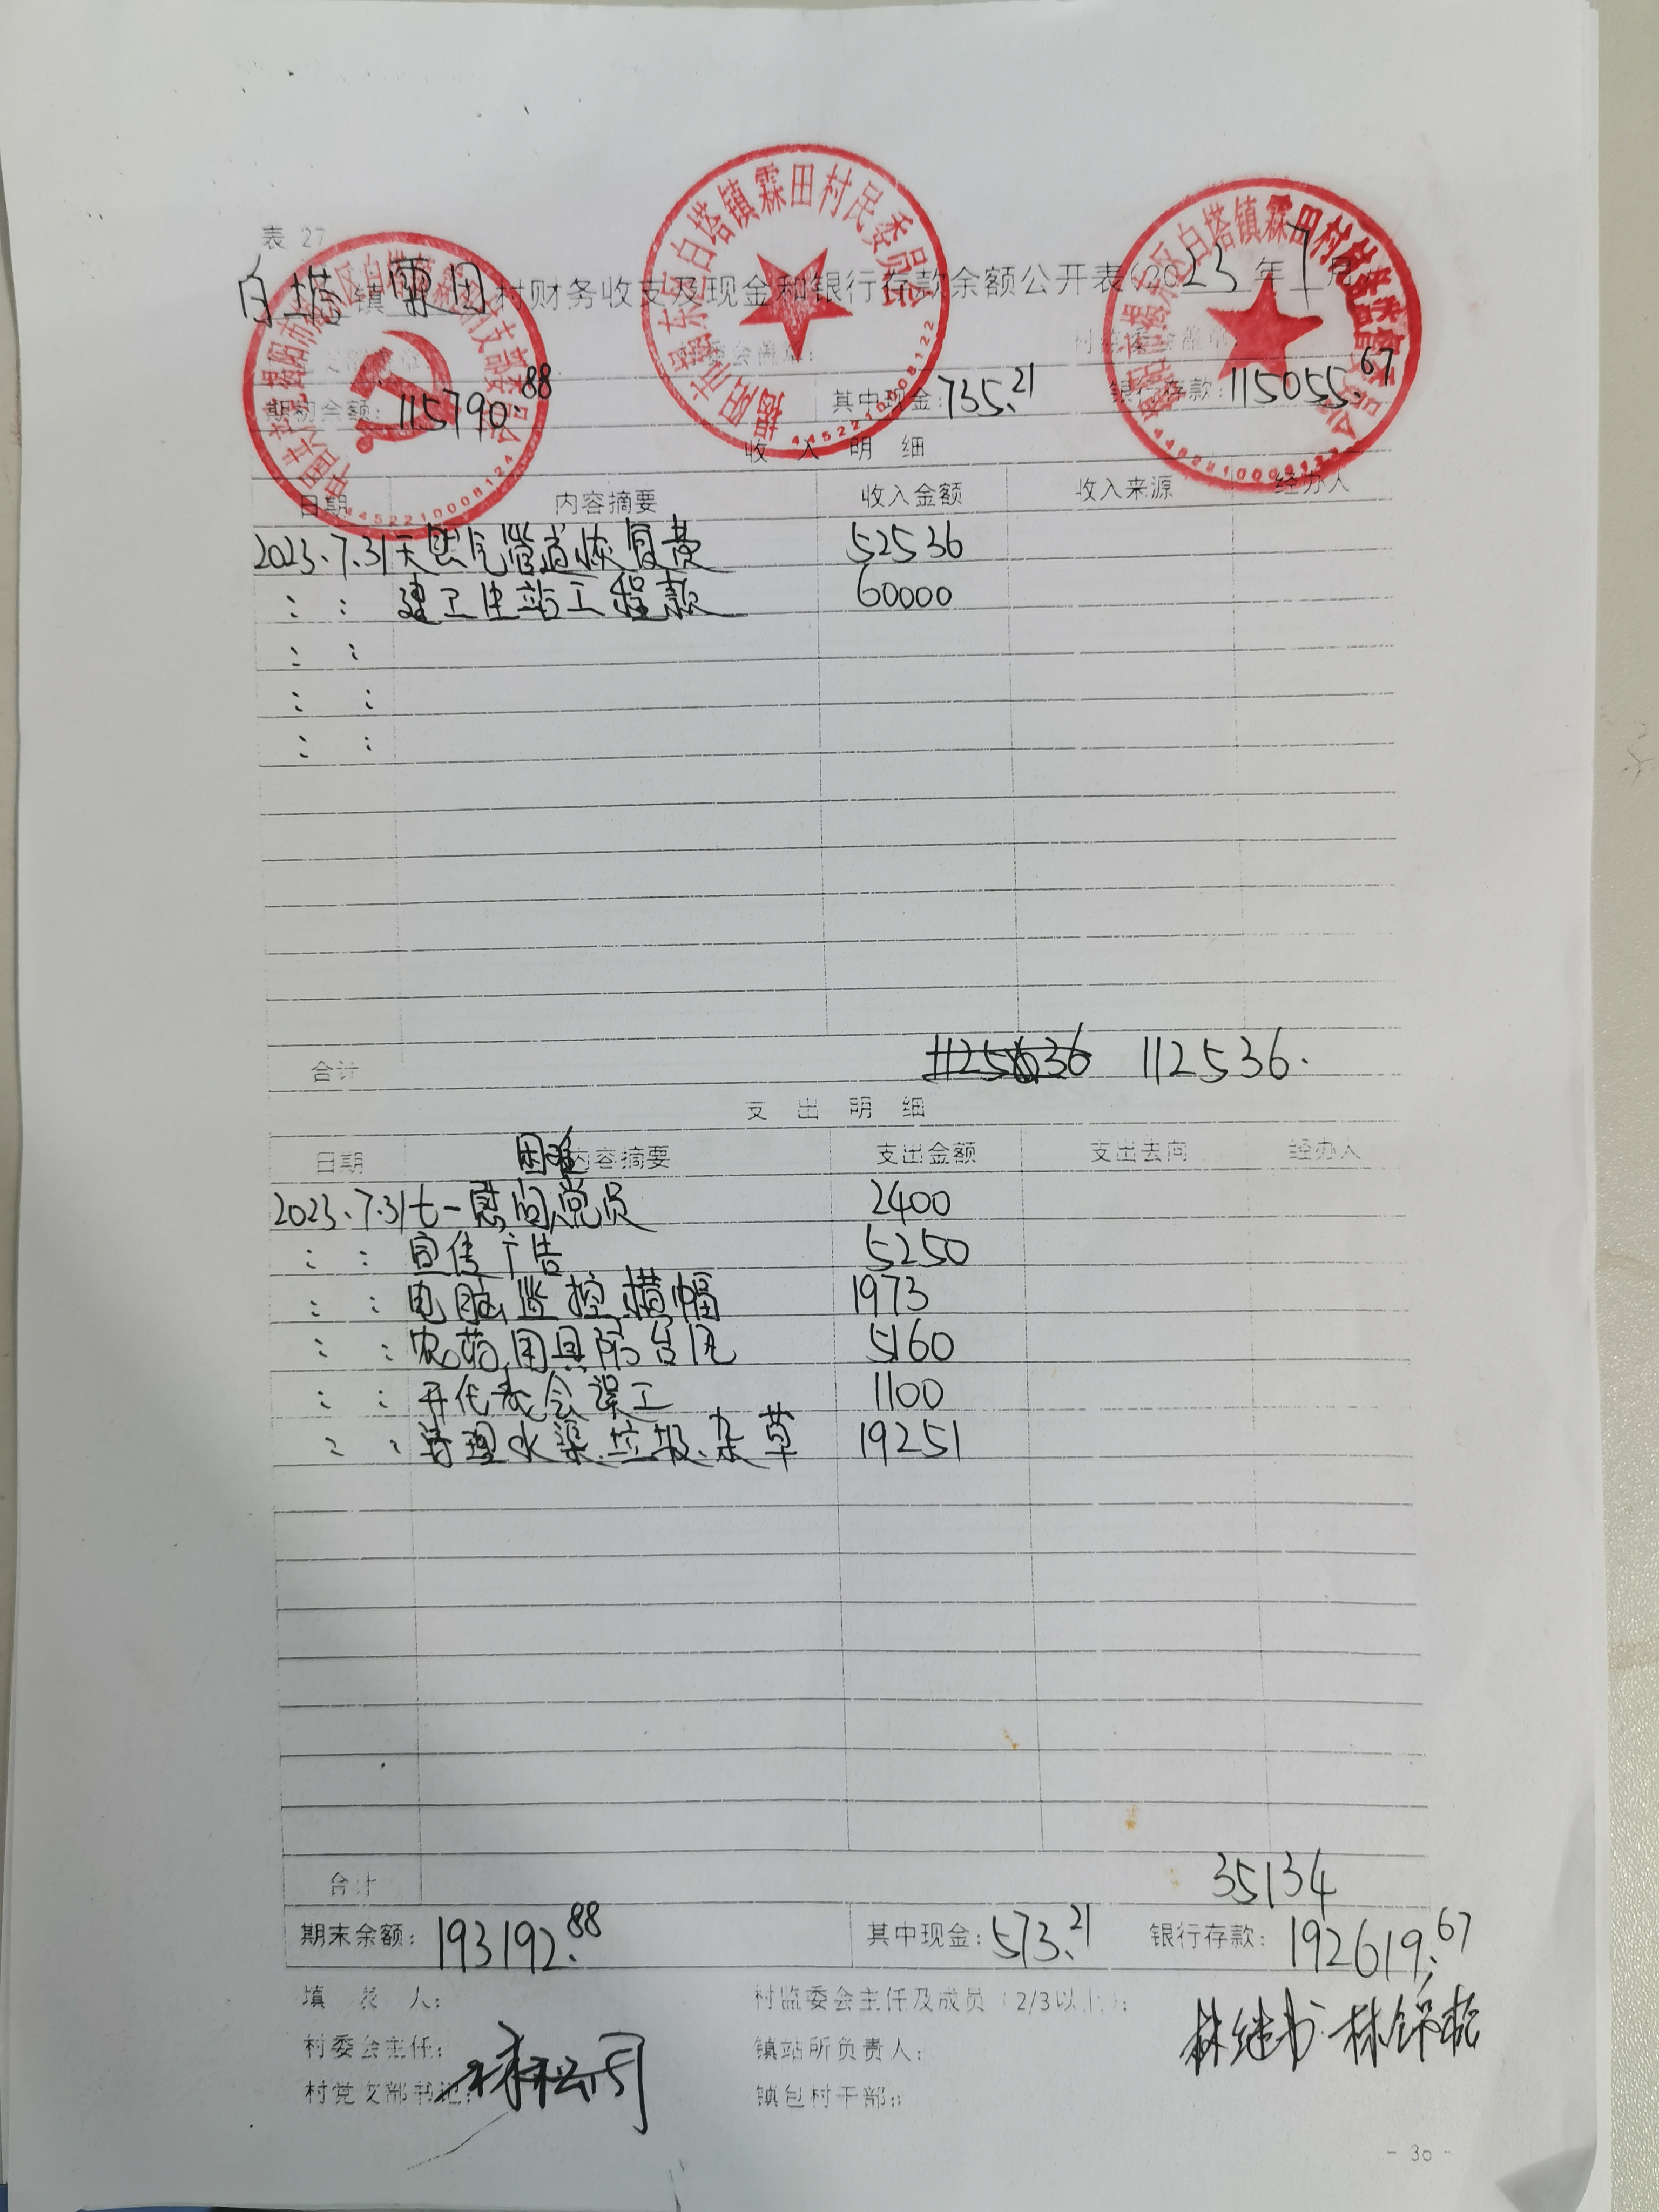 表 27
白塔镇霖田村财务收支及现金和银行存款余额公开表(2023年7月)
中国共产党揭阳市揭东区白塔镇霖田村支部委员会
4452210008124
揭阳市揭东区白塔镇霖田村民委员会
4452210008122
揭阳市揭东区白塔镇霖田村
村委会盖章:
村监委会盖章
期初余额: 115790.88 其中现金: 735.21 银行存款: 115055.67
收入明细
日期 内容摘要 收入金额 收入来源 经办人
2023.7.31 天然气管道恢复费 52536
: : 建卫生站工程款 60000
: :
: :
: :
合计 112536.
支出明细
日期 内容摘要 支出金额 支出去向 经办人
困难
2023.7.31 七一慰问党员 2400
: : 宣传广告 5250
: : 电脑监控横幅 1973
: : 农药.用具防台风 5160
: : 开代表会误工 1100
: : 清理水渠.垃圾.杂草 19251
合计 35134
期末余额: 193192.88 其中现金: 573.21 银行存款: 192619.67
填表人: 村监委会主任及成员(2/3以上):
村委会主任: 镇站所负责人:
村党支部书记: 镇包村干部:
- 30 -